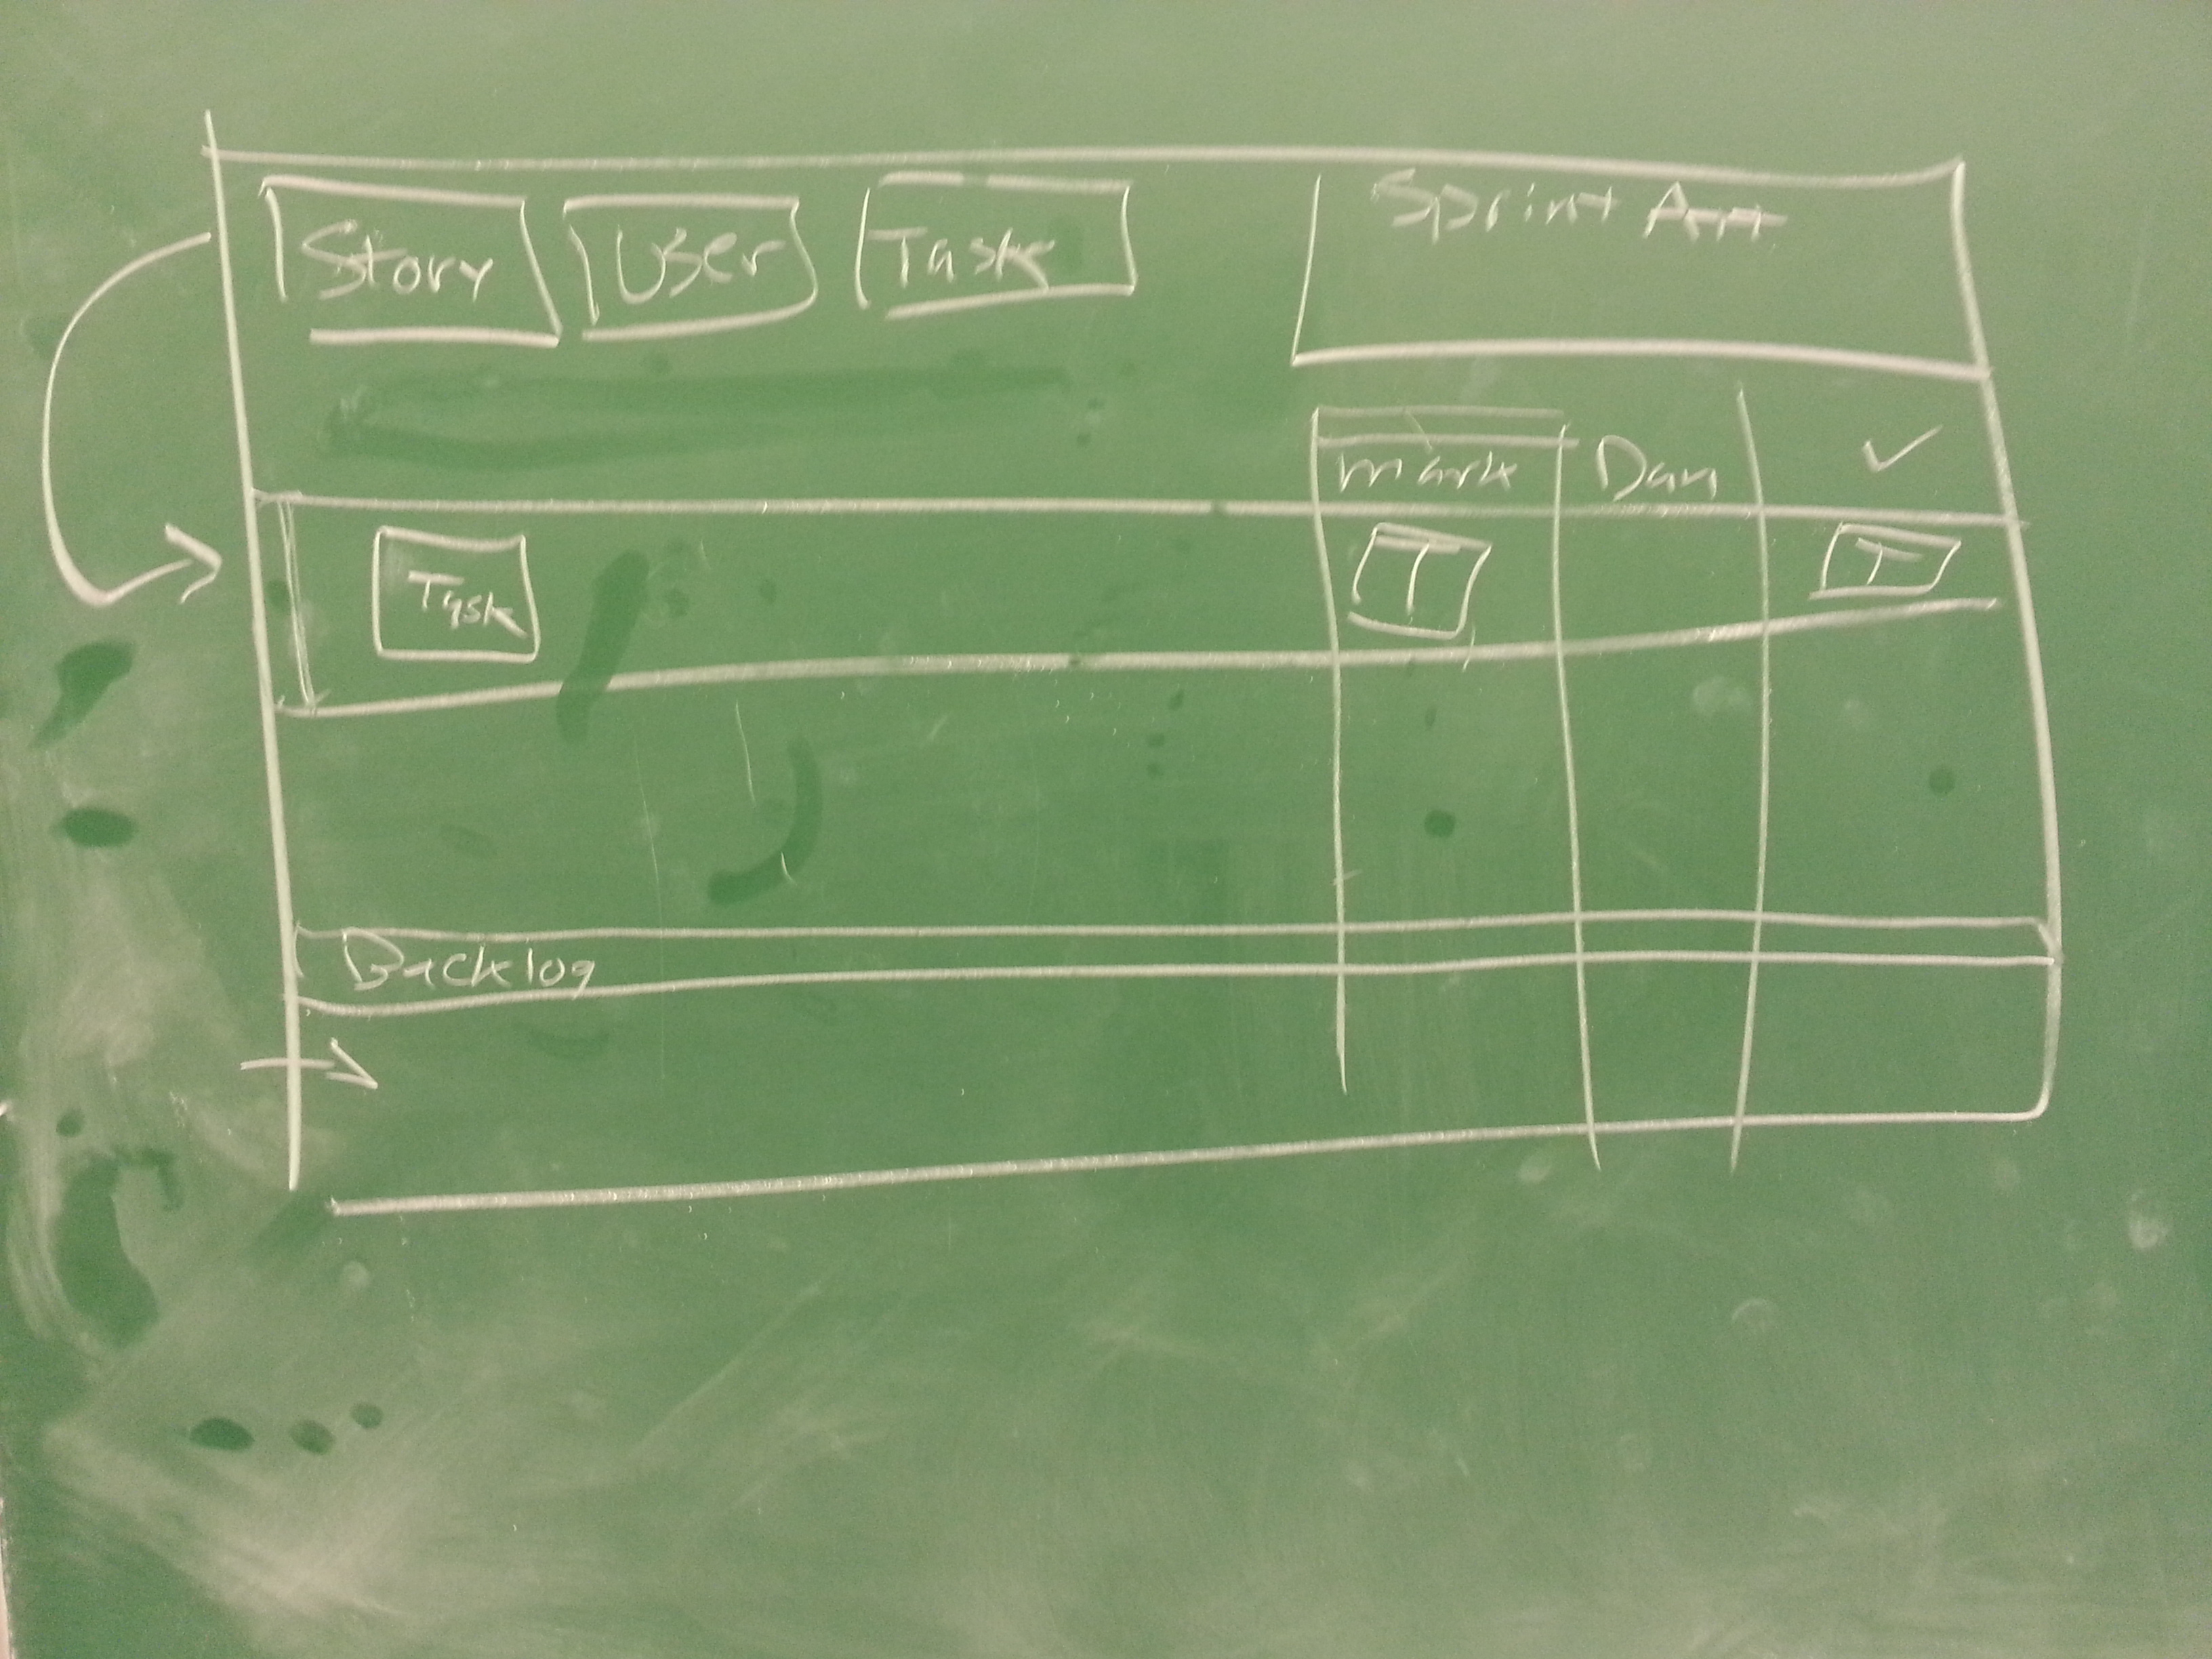 Story User Task Sprint
mark Dan ✓
Task T T
Backlog